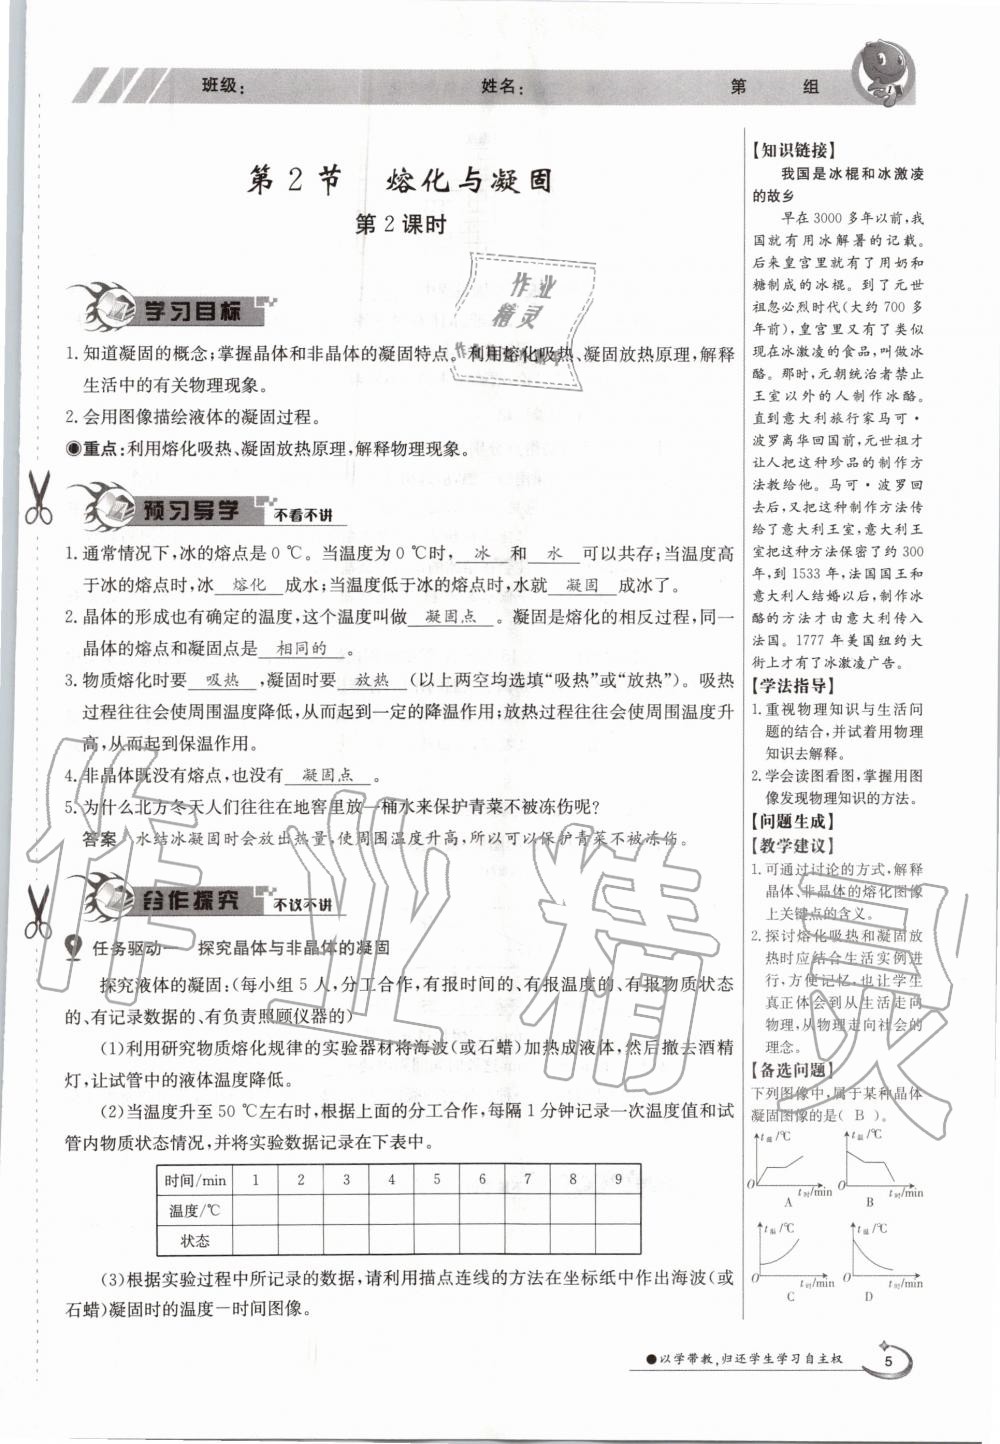 班级： 姓名： 第 组
第2节 熔化与凝固
第2课时
作业
精灵
学习目标
1. 知道凝固的概念；掌握晶体和非晶体的凝固特点。利用熔化吸热、凝固放热原理，解释
生活中的有关物理现象。
2. 会用图像描绘液体的凝固过程。
◉重点：利用熔化吸热、凝固放热原理，解释物理现象。
预习导学 不看不讲
1. 通常情况下，冰的熔点是0 ℃。当温度为0 ℃时， 冰 和 水 可以共存；当温度高
于冰的熔点时，冰 熔化 成水；当温度低于冰的熔点时，水就 凝固 成冰了。
2. 晶体的形成也有确定的温度，这个温度叫做 凝固点 。凝固是熔化的相反过程，同一
晶体的熔点和凝固点是 相同的 。
3. 物质熔化时要 吸热 ，凝固时要 放热 （以上两空均选填“吸热”或“放热”）。吸热
过程往往会使周围温度降低，从而起到一定的降温作用；放热过程往往会使周围温度升
高，从而起到保温作用。
4. 非晶体既没有熔点，也没有 凝固点 。
5. 为什么北方冬天人们往往在地窖里放一桶水来保护青菜不被冻伤呢？
答案 水结冰凝固时会放出热量，使周围温度升高，所以可以保护青菜不被冻伤。
合作探究 不议不讲
任务驱动一 探究晶体与非晶体的凝固
探究液体的凝固：（每小组5人，分工合作，有报时间的、有报温度的、有报物质状态
的、有记录数据的、有负责照顾仪器的）
（1）利用研究物质熔化规律的实验器材将海波（或石蜡）加热成液体，然后撤去酒精
灯，让试管中的液体温度降低。
（2）当温度升至50 ℃左右时，根据上面的分工合作，每隔1分钟记录一次温度值和试
管内物质状态情况，并将实验数据记录在下表中。
时间/min 1 2 3 4 5 6 7 8 9
温度/℃
状态
（3）根据实验过程中所记录的数据，请利用描点连线的方法在坐标纸中作出海波（或
石蜡）凝固时的温度—时间图像。
【知识链接】
我国是冰棍和冰激凌
的故乡
早在3000多年以前，我
国就有用冰解暑的记载。
后来皇宫里就有了用奶和
糖制成的冰棍。到了元世
祖忽必烈时代（大约700多
年前），皇宫里又有了类似
现在冰激凌的食品，叫做冰
酪。那时，元朝统治者禁止
王室以外的人制作冰酪。
直到意大利旅行家马可·
波罗离华回国前，元世祖才
让人把这种珍品的制作方
法教给他。马可·波罗回
去后，又把这种制作方法传
给了意大利王室，意大利王
室把这种方法保密了约300
年，到1533年，法国国王和
意大利人结婚以后，制作冰
酪的方法才由意大利传入
法国。1777年美国纽约大
街上才有了冰激凌广告。
【学法指导】
1. 重视物理知识与生活问
题的结合，并试着用物理
知识去解释。
2. 学会读图看图，掌握用图
像发现物理知识的方法。
【问题生成】
【教学建议】
1. 可通过讨论的方式，解释
晶体、非晶体的熔化图像
上关键点的含义。
2. 探讨熔化吸热和凝固放
热时应结合生活实例进
行，方便记忆，也让学生
真正体会到从生活走向
物理，从物理走向社会的
理念。
【备选问题】
下列图像中，属于某种晶体
凝固图像的是（ B ）。
t温/℃ t温/℃
O t时/min O t时/min
A B
t温/℃ t温/℃
O t时/min O t时/min
C D
●以学带教，归还学生学习自主权 5
作业精灵